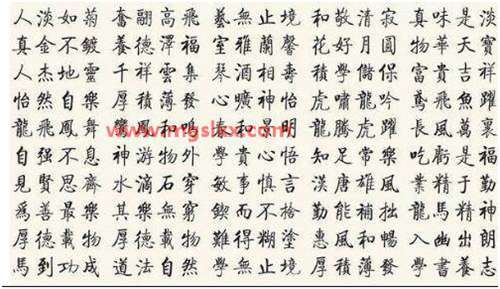 人淡如菊 奮翮高飛 藝無止境 和敬清寂 真味是淡
真金不鍍 養德澤福 室雅蘭馨 花好月圓 物華天寶
人杰地靈 千祥雲集 琴酒相壽 積學儲保 富貴吉祥
怡然自樂 厚積薄發 心曠神怡 虎嘯龍吟 鳶飛魚躍
龍飛鳳舞 鳳和鳴 和景明 龍騰虎躍 長風萬裏
自強不息 神游物外 學貴心悟 知足常樂 吃虧是福
見賢思齊 水滴石穿 敏事慎言 漢唐雄風 業精于勤
爲善最樂 其樂無窮 鍥而不捨 勤能補拙 龍馬精神
厚德載物 厚德載物 難得糊塗 惠風和暢 入幽出朗
馬到功成 道法自然 學無止境 厚積薄發 學書養志